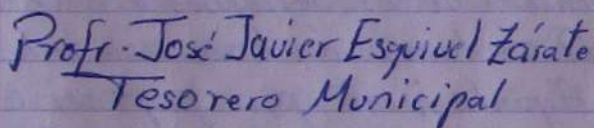 Profr. José Javier Esquivel Zárate
Tesorero Municipal